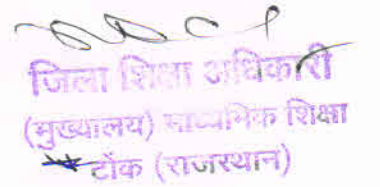 जिला शिक्षा अधिकारी
(मुख्यालय) माध्यमिक शिक्षा
टोंक (राजस्थान)